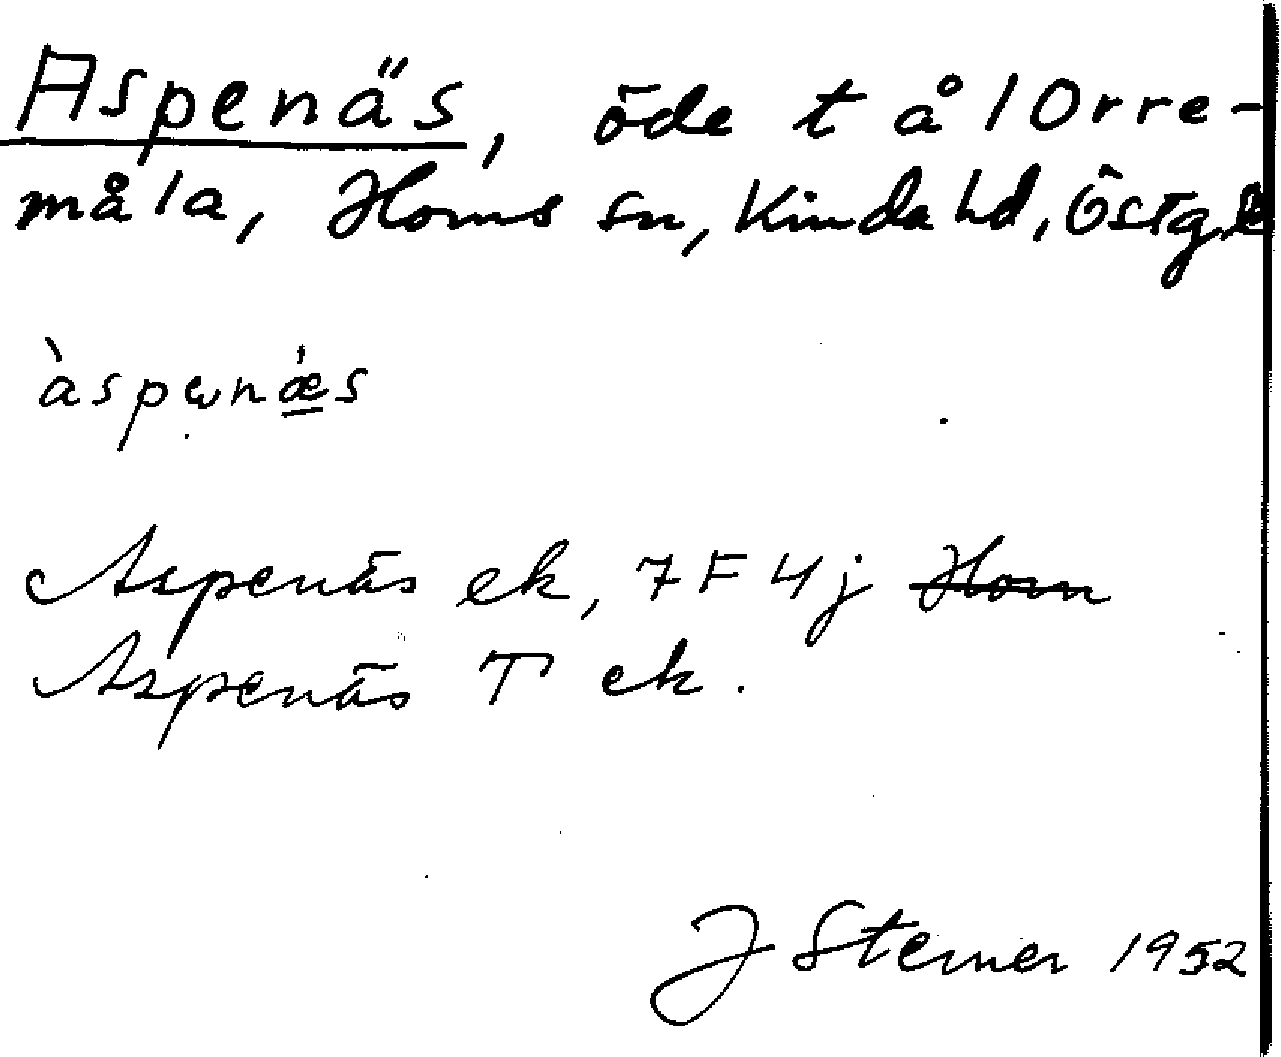 Aspenäs, öde t å l Orre-
måla, Horns sn, Kinda hd, Östg.
àspɯnǽs
Aspenäs ek, 7F4j Horn
Aspenäs T ek.
J Sterner 1952